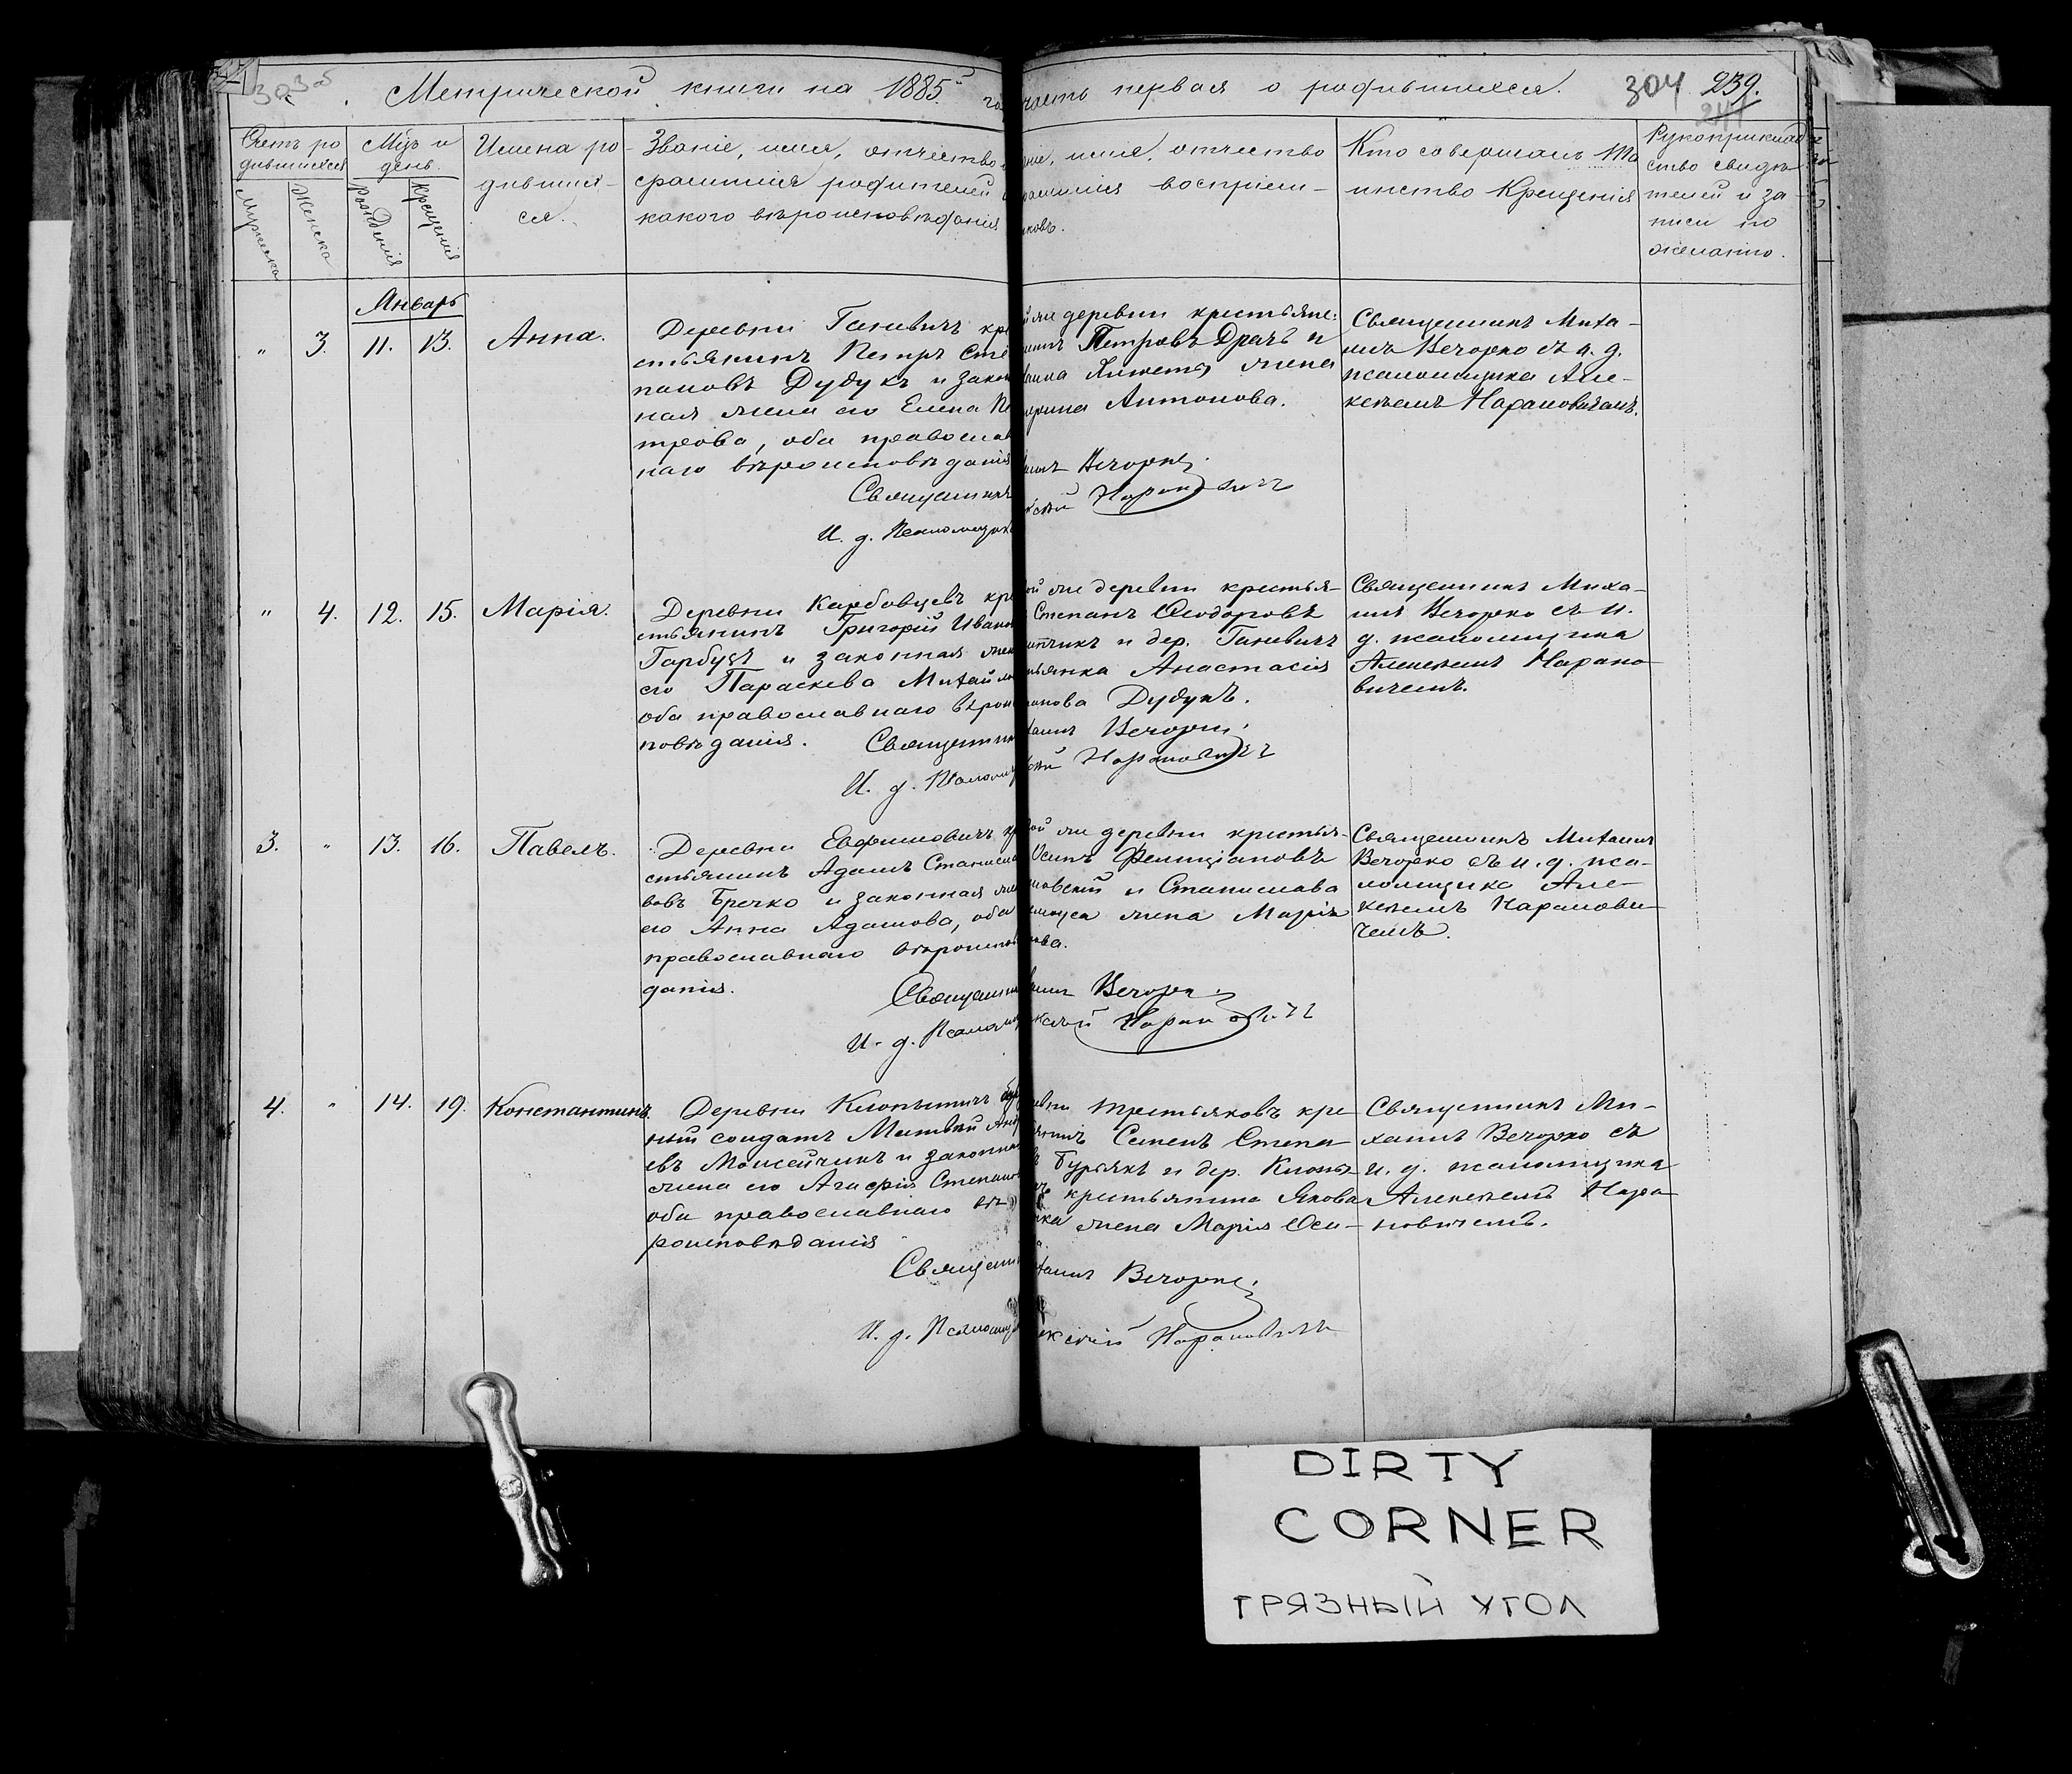 Метрической книги на 1885 й
часть первая о родившихся. 304 239.
Счетъ ро
дившихся
Мужеска
Женска
Мцъ и
день
рожденія
крещенія
Имена ро-
дивших-
ся.
Званіе, имя, отчество и
фамилія родителей и
какого вѣроисповѣданія
имя, отчество
воспріем-
никовъ.
Кто совершалъ Та
инство Крещенія
Рукоприклад
ство свидѣ
телей и за-
писи по
желанію.
Январь
" 3. 11. 13. Анна.
Деревни Ганевичъ кре
стьянинъ Петръ Сте
пановъ Дудукъ и закон
ная жена его Елена Пе
трова, оба православ
наго вѣроисповѣданія
Священникъ
И. д. Псаломщика
же деревни крестьяне:
Петровъ Драчъ и
жена
Антонова.
Вечорко
Наранович
Священникъ Миха-
илъ Вечорко съ и. д.
псаломщика Але-
ксѣемъ Нарановичемъ.
" 4. 12. 15. Марія.
Деревни Карбовцевъ кре
стьянинъ Григорій Ивано
Гарбузъ и законная жен
его Параскева Михайло
оба православнаго вѣроис
повѣданія. Священник
И. д. Псаломщ
же деревни крестья-
Степанъ Ѳеодоровъ
и дер. Ганевичъ
Анастасія
Дудукъ.
Вечорко
Наранович
Священникъ Миха-
илъ Вечорко съ и.
д. псаломщика
Алексѣемъ Нарано-
вичемъ.
3. " 13. 16. Павелъ.
Деревни Евфимовичъ кр
стьянинъ Адамъ Станисла
вовъ Бречко и законная же
его Анна Адамова, оба
православнаго вѣроиспов
данія.
Священни
И. д. Псаломщ
же деревни крестья-
Осипъ Фелиціановъ
и Станислава
жена Марія
Вечорко
Наранович
Священникъ Михаилъ
Вечорко съ и. д. пса-
ломщика Але-
ксѣемъ Наранови-
чемъ.
4. " 14. 19. Константинъ.
Деревни Клопытичъ
ный солдатъ Матвѣй Анд
евъ Моисейчикъ и законна
жена его Агафія Степано
оба православнаго вѣ
роисповѣданія
Священни
И. д. Псаломщ
Третьяковъ кре-
Семенъ Степа-
Бурякъ и дер. Клопы
крестьянина Якова
жена Марія Оси-
Вечорко
Алексѣй Нарановичъ
Священникъ Ми-
хаилъ Вечорко съ
и. д. псаломщика
Алексѣемъ Нара-
новичемъ.
DIRTY
CORNER
ГРЯЗНЫЙ УГОЛ